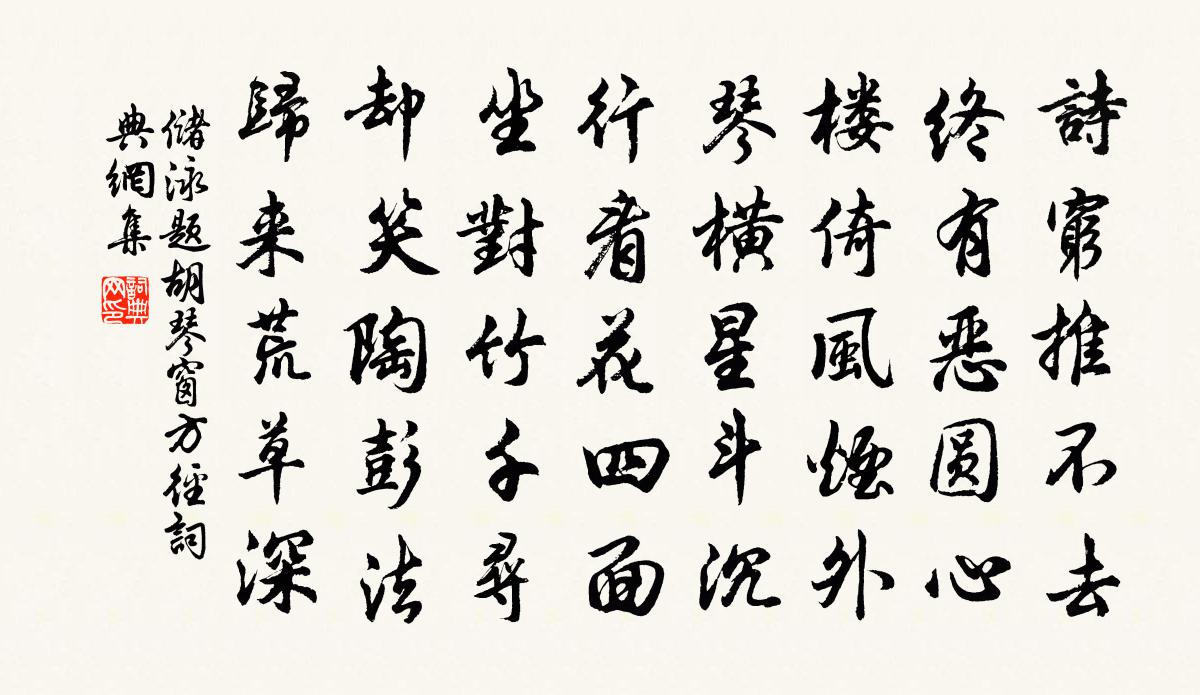 詩窮推不去
終有惡圓心
楼倚風煙外
琴橫星斗沉
行看花四面
坐對竹千尋
却笑陶彭法
歸来荒草深
儲泳題胡琴窗方徑詞
典網集
詞典
网印